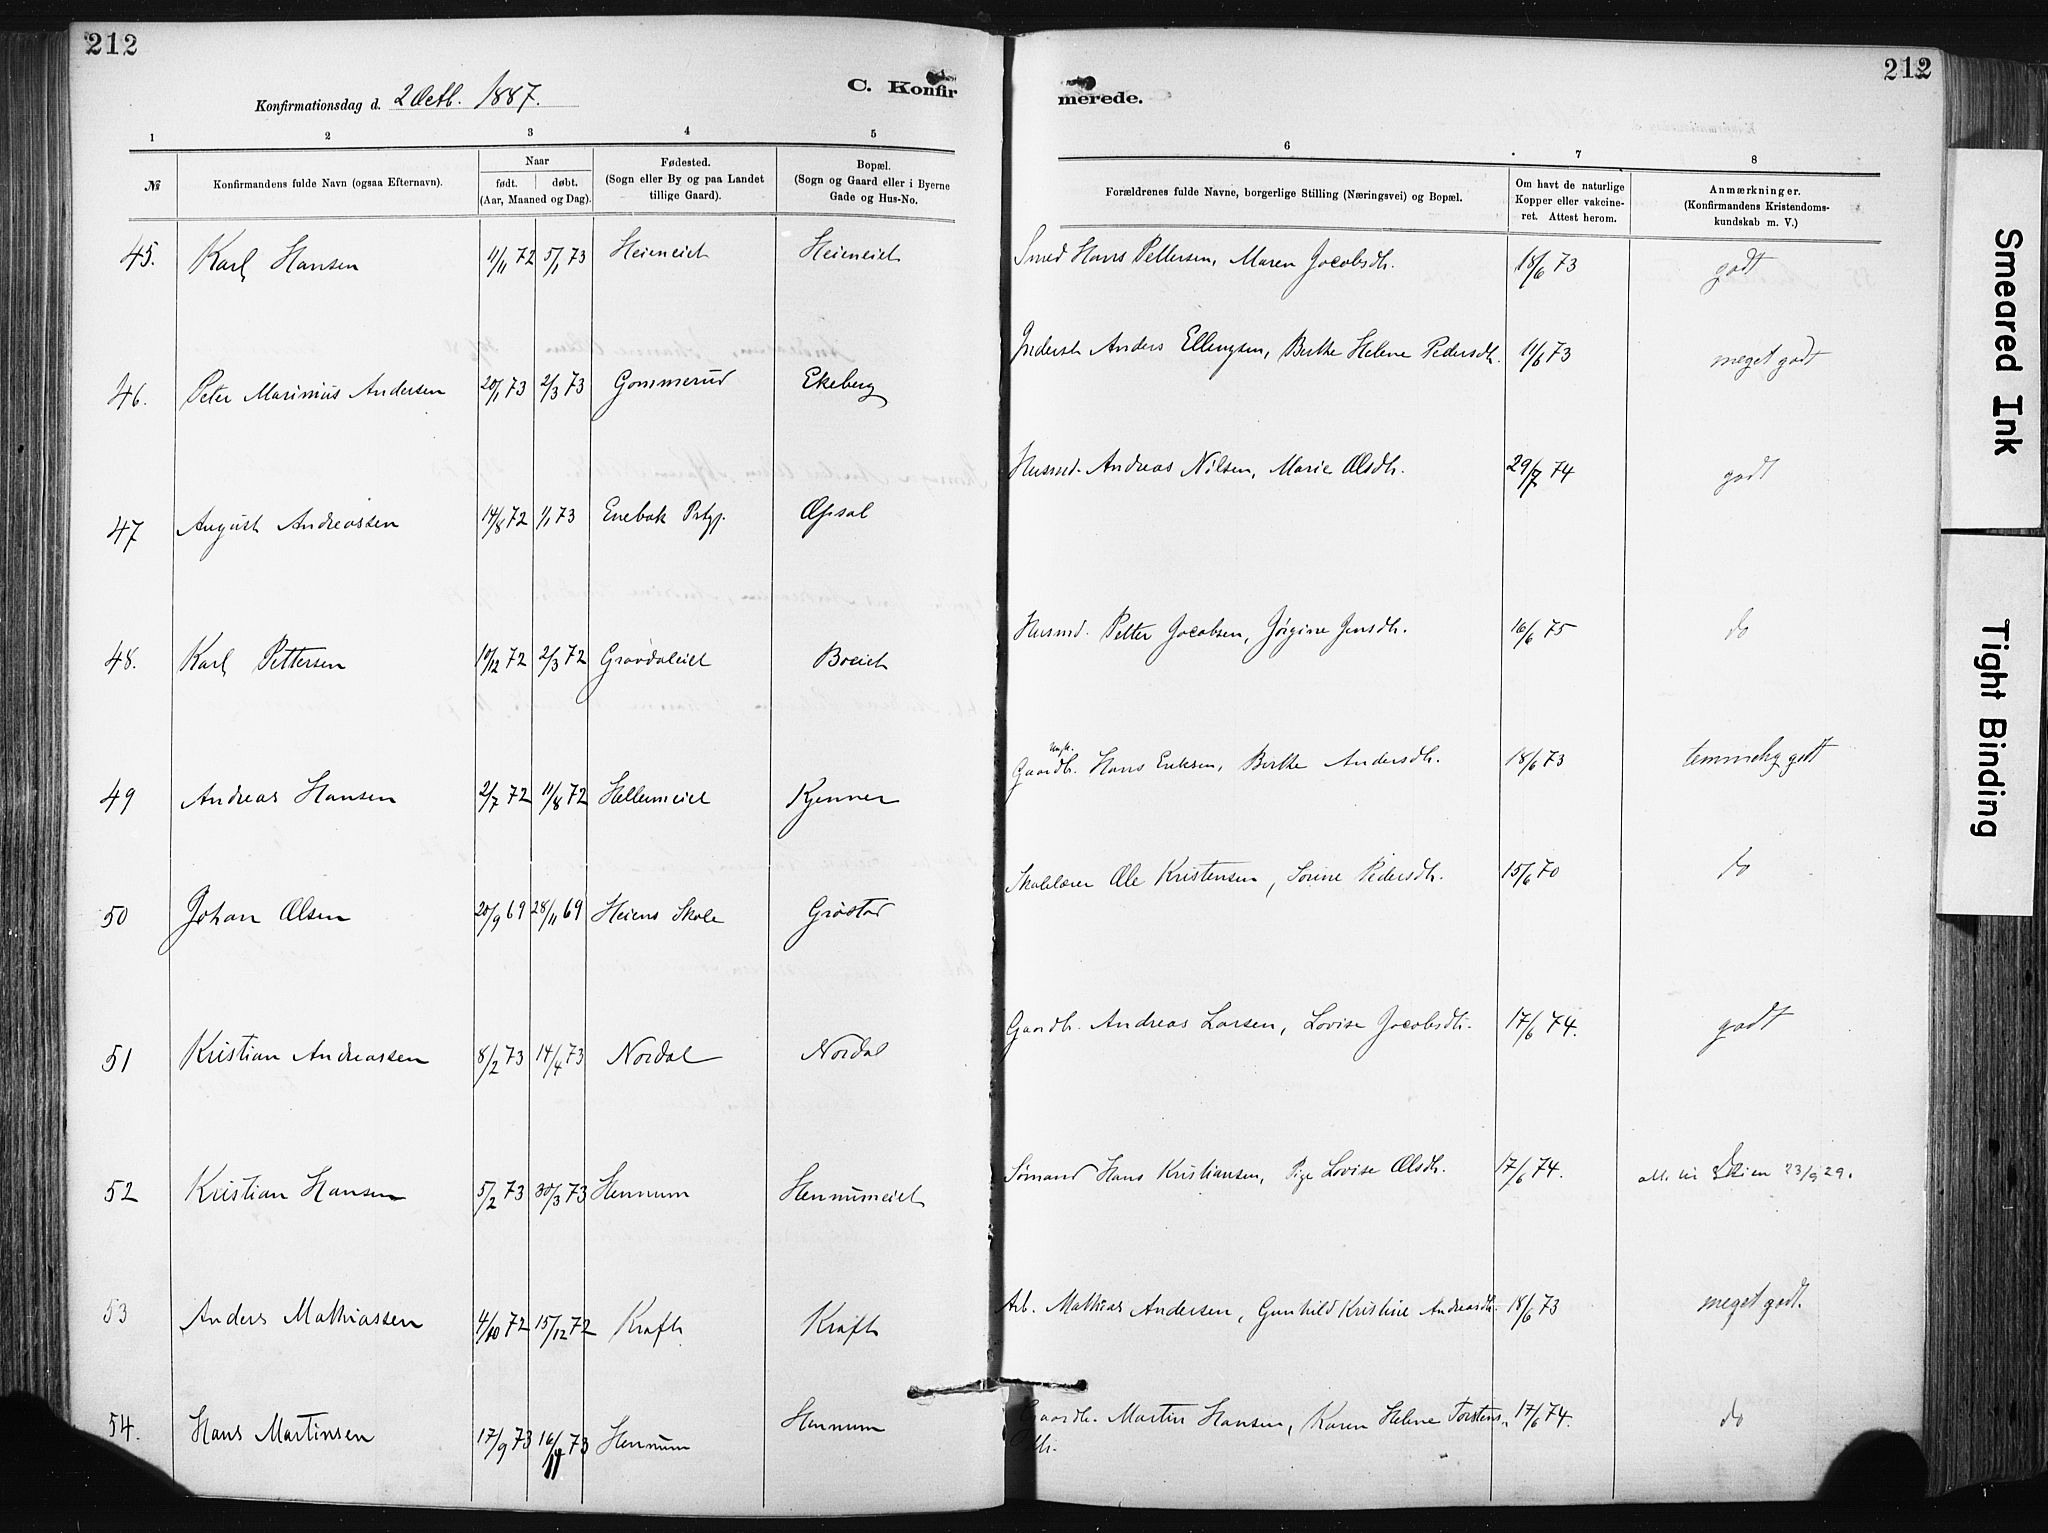 212
Konfirmationsdag d. 2 Octb. 1887.
C. Konfir
merede.
212
1 2 3 4 5 6 7 8
№
Konfirmandens fulde Navn (ogsaa Efternavn).
Naar
født. døbt.
(Aar, Maaned og Dag).
Fødested.
(Sogn eller By og paa Landet
tillige Gaard).
Bopæl.
(Sogn og Gaard eller i Byerne
Gade og Hus-No.
Forældrenes fulde Navne, borgerlige Stilling (Næringsvei) og Bopæl.
Om havt de naturlige
Kopper eller vakcine-
ret. Attest herom.
Anmærkninger.
(Konfirmandens Kristendoms-
kundskab m. V.)
45. Karl Hansen 11/11 72 5/1 73 Heieneiet Heieneiet Smed Hans Pettersen, Maren Jacobsdtr. 18/6 73 godt
46. Peter Marinius Andersen 20/1 73 2/3 73 Gommerud Ekeberg Inderst Anders Ellingsen, Berthe Helene Pedersdtr. 11/6 73 meget godt
47 August Andreassen 14/8 72 1/1 73 Enebak Prstgj. Opsal Husmd. Andreas Nilsen, Marie Olsdtr. 29/7 74 godt
48. Karl Pettersen 10/12 72 2/3 72 Gravdaleiet Boeiet Husmd. Petter Jacobsen, Jørgine Jensdtr. 16/6 75 do
49 Andreas Hansen 2/7 72 11/8 72 Hellumeiet Kjenner Gaardbr. Hans Eriksen, Berthe Andersdtr. 18/6 73 temmelig godt
50 Johan Olsen 20/9 69 28/11 69 Heiens Skole Grøstad Skolelærer Ole Kristensen, Sorine Pedersdtr. 15/6 70 do
51 Kristian Andreassen 8/2 73 14/4 73 Nordal Nordal Gaardbr. Andreas Larsen, Lovise Jacobsdtr. 17/6 74. godt
52 Kristian Hansen 5/2 73 30/3 73 Hennum Hennumeiet Sømand Hans Kristiansen, Pige Lovise Olsdtr. 17/6 74. do
att. til Skien 23/9 29.
53 Anders Mathiassen 4/10 72 15/12 72 Kraft Kraft Arb. Mathias Andersen, Gunhild Kristine Andreasdtr. 18/6 73 meget godt.
54. Hans Martinsen 17/9 73 16/11 73 Hennum Hennum Gaardbr. Martin Hansen, Karen Helene Torstens- 17/6 74. do
dtr.
Smeared Ink
Tight Binding